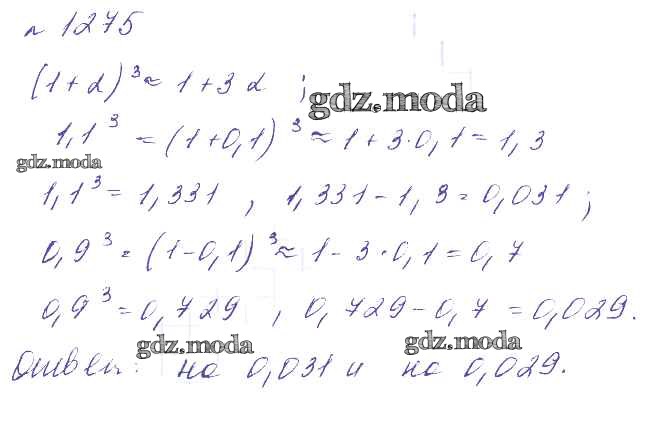 № 1275
(1+α)³ ≈ 1+3α ;
gdz.moda
1,1³ = (1+0,1)³ ≈ 1+3·0,1 = 1,3
gdz.moda
1,1³ = 1,331 , 1,331 - 1,3 = 0,031 ;
0,9³ = (1-0,1)³ ≈ 1-3·0,1 = 0,7
0,9³ = 0,729 , 0,729 - 0,7 = 0,029.
gdz.moda gdz.moda
Ответ: на 0,031 и на 0,029.